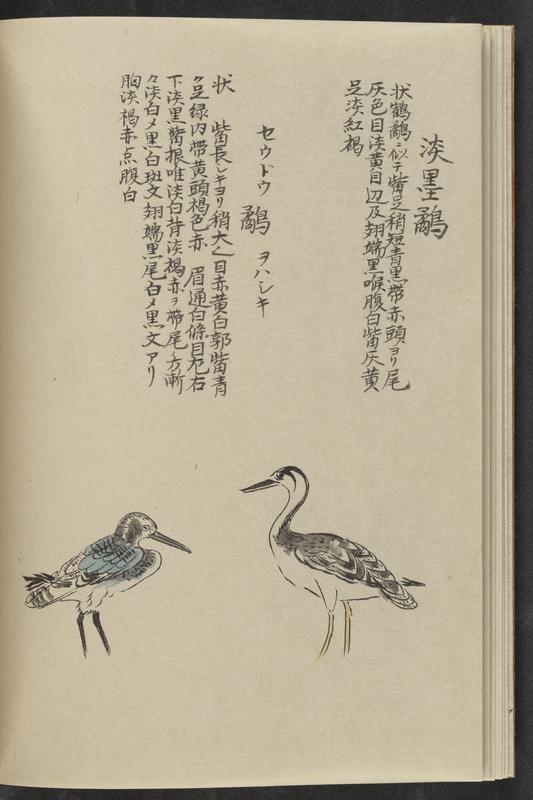 淡墨鷸
状鶴鷸ニ似テ觜足稍短青黒帯赤頭ヨリ尾
灰色目淡黄目辺及翅端黒喉腹白觜灰黄
足淡紅褐
セウドウ 鷸 ヲハシキ
状 觜長シキヨリ稍大也目赤黄白郭觜青
ク足緑内帯黄頭褐色赤 眉通白條目左右
下淡黒觜根喉淡白背淡褐赤ヲ帯尾ノ方漸
々淡白メ黒白斑文翅端黒尾白メ黒文アリ
胸淡褐赤点腹白